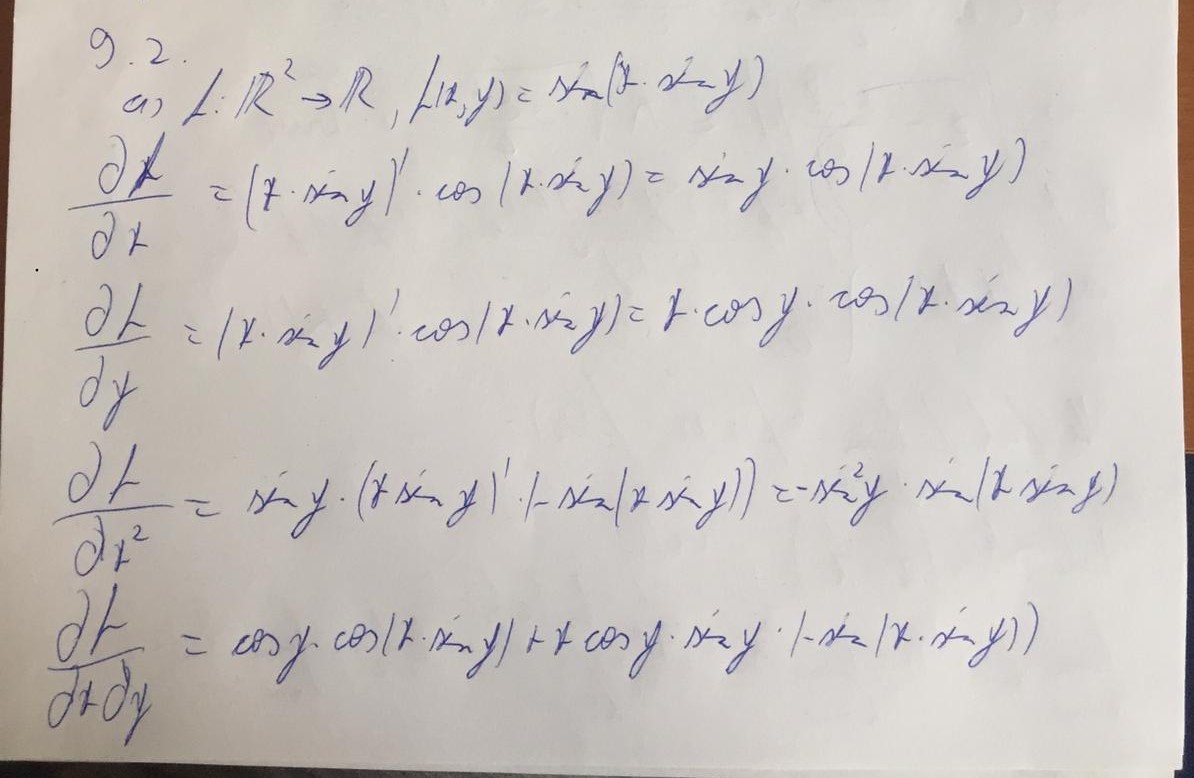 9.2.
a) f: ℝ² → ℝ, f(x,y) = sin(x · sin y)
∂f/∂x = (x · sin y)' · cos(x · sin y) = sin y · cos(x · sin y)
∂f/∂y = (x · sin y)' · cos(x · sin y) = x · cos y · cos(x · sin y)
∂f/∂x² = sin y · (x sin y)' · (-sin(x sin y)) = -sin²y · sin(x sin y)
∂f/∂x∂y = cos y · cos(x · sin y) + x cos y · sin y · (-sin(x · sin y))